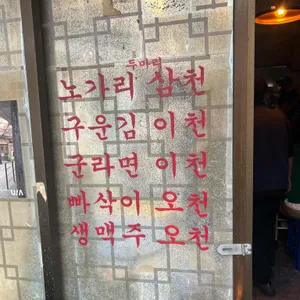 두마리
노가리 삼천
구운김 이천
군라면 이천
빠삭이 오천
생맥주 오천